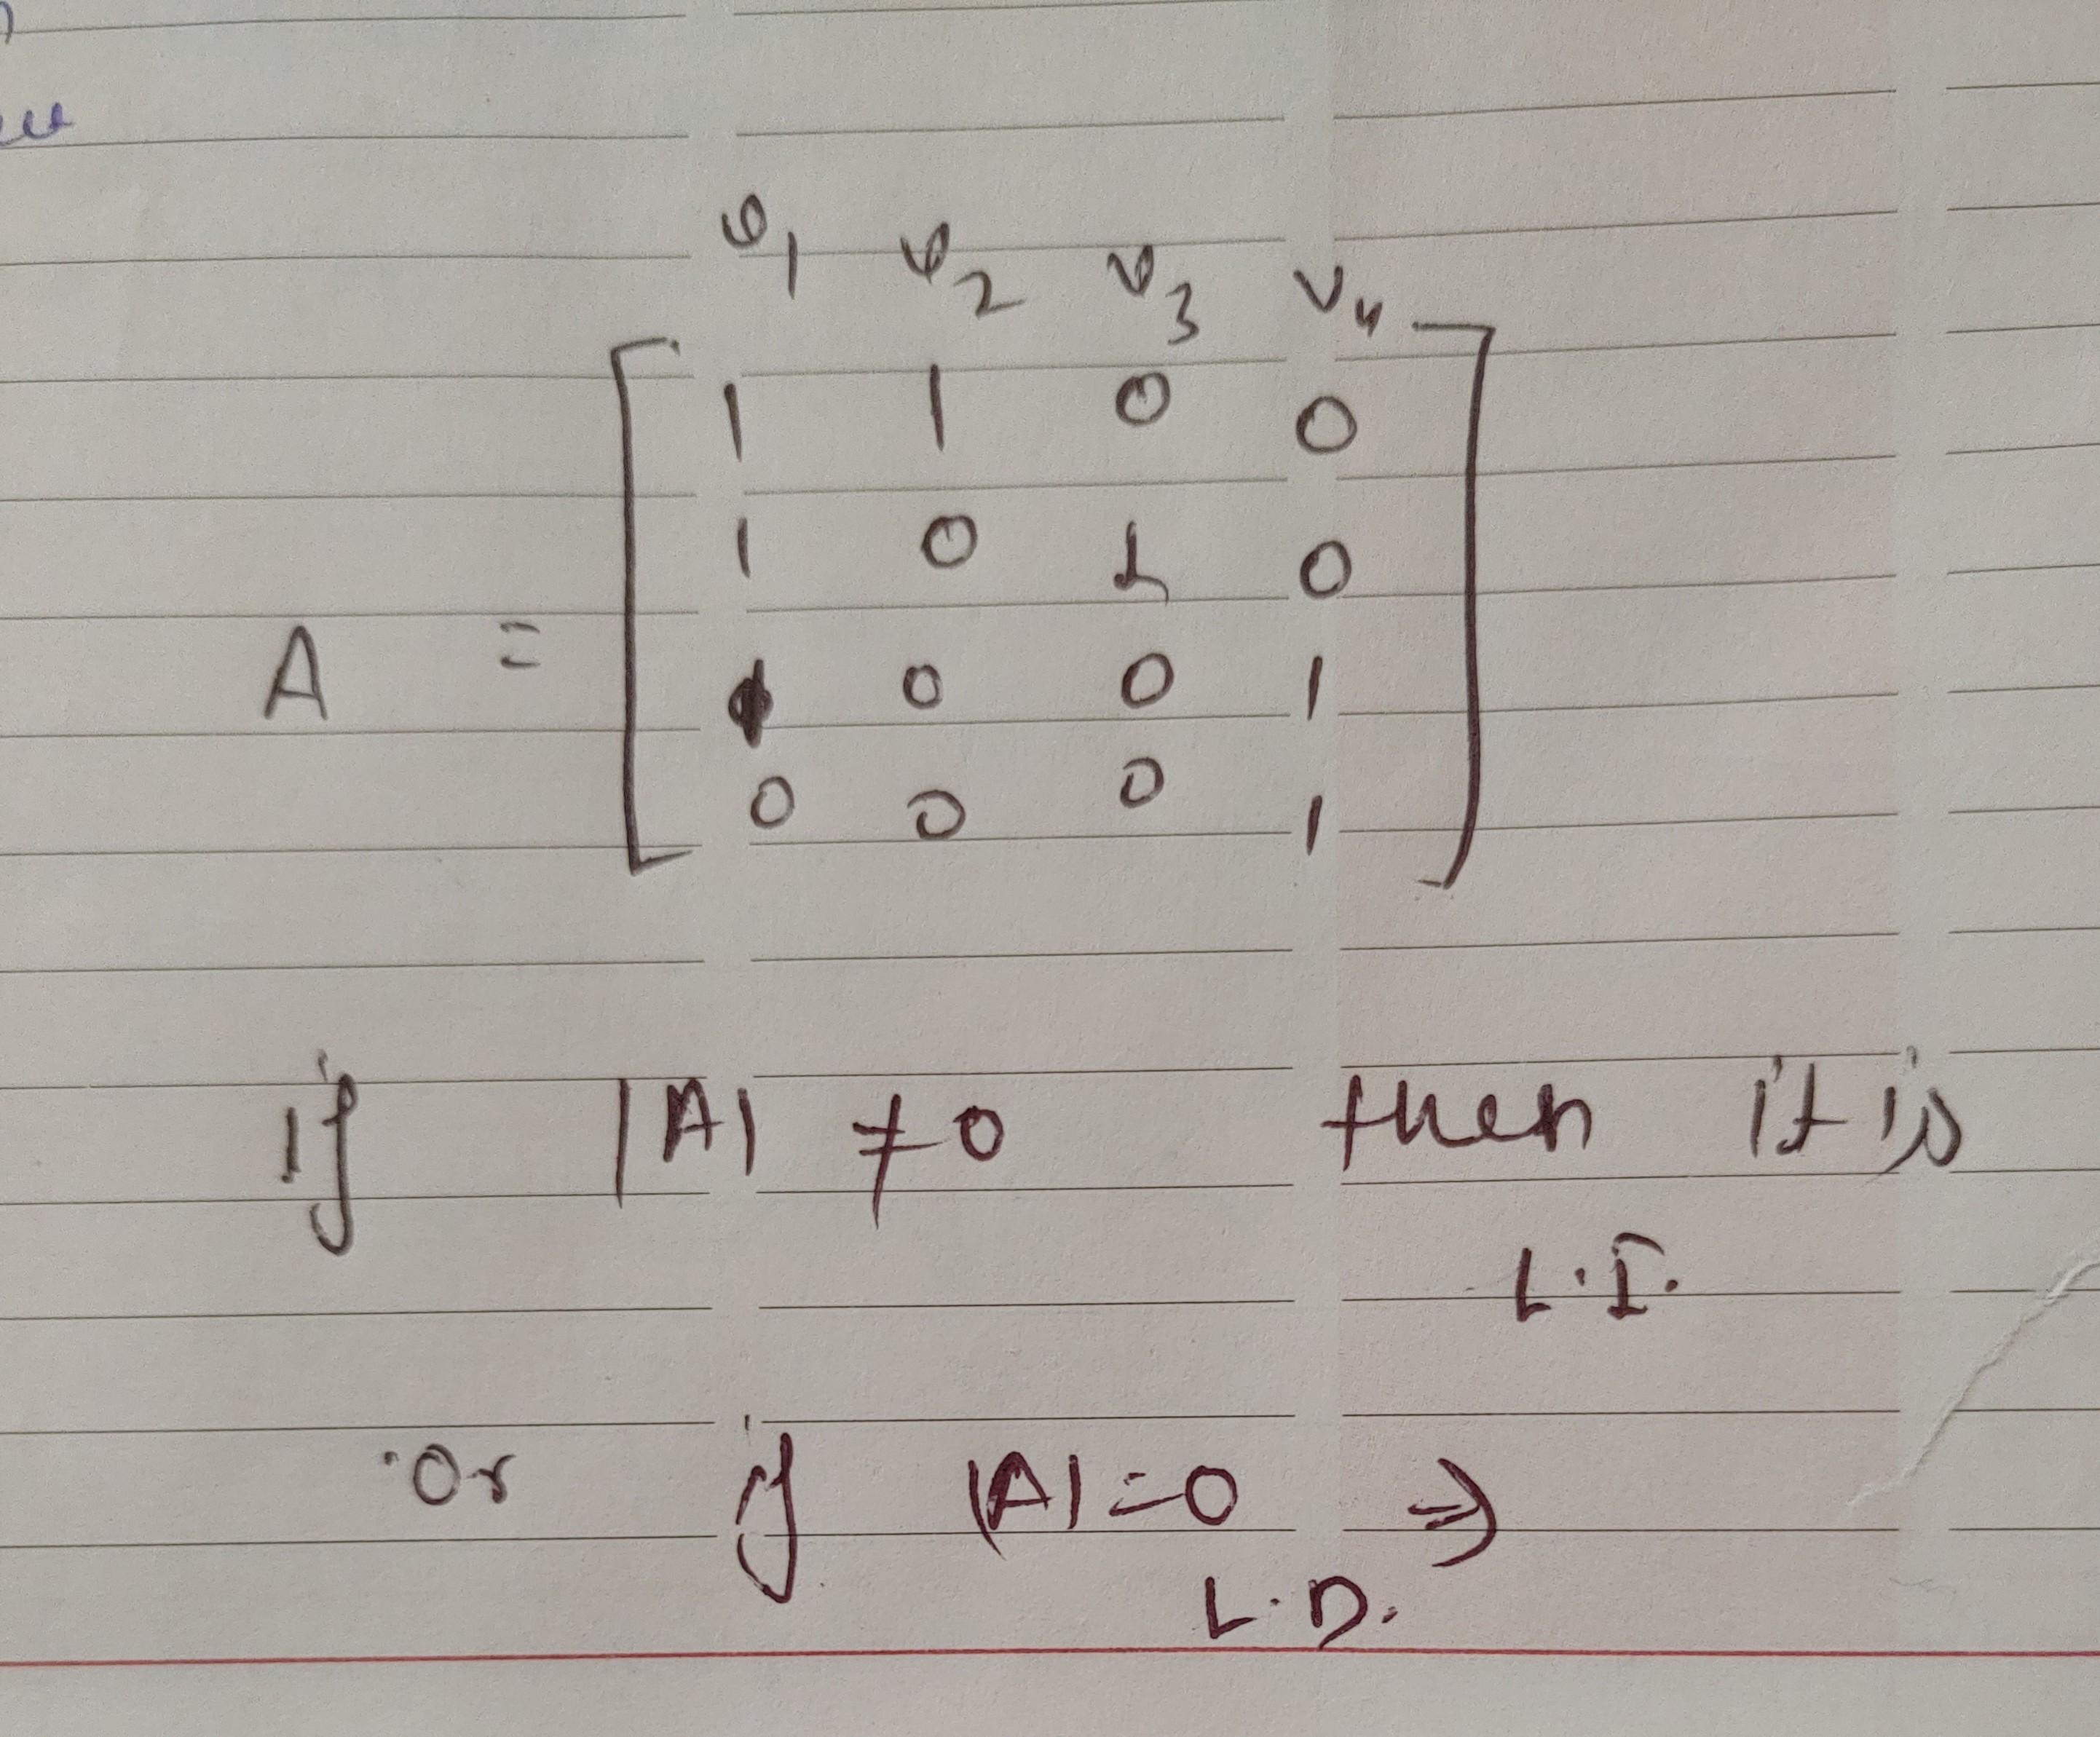 v1 v2 v3 v4
1 1 0 0
1 0 1 0
A =
0 0 1
0 0 0 1
if |A| ≠ 0 then it is
L.I.
Or if |A| = 0 ⇒
L.D.